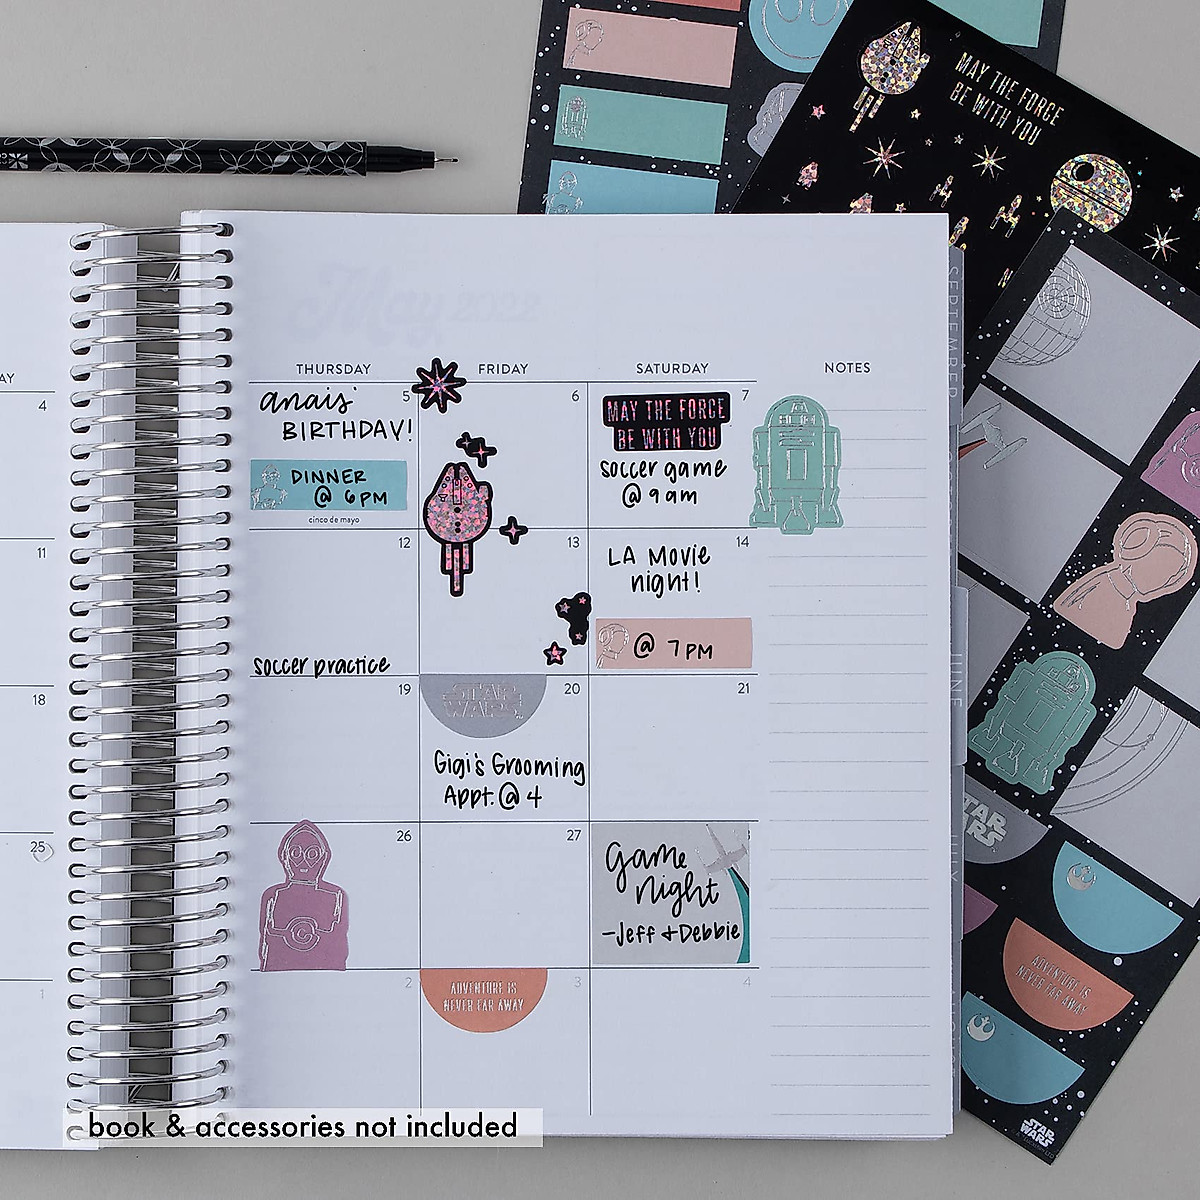 MAY THE FORCE
BE WITH YOU
May 2022
AY
THURSDAY
FRIDAY
SATURDAY
NOTES
4
5
anais'
BIRTHDAY!
DINNER
@ 6 PM
cinco de mayo
6
7
MAY THE FORCE
BE WITH YOU
soccer game
@ 9 am
11
12
soccer practice
13
14
LA Movie
night!
@ 7 PM
18
19
20
STAR
WARS
Gigi's Grooming
Appt. @ 4
21
25
26
27
Game
night
-Jeff + Debbie
1
2
3
ADVENTURE IS
NEVER FAR AWAY
4
SEPTEMBER
JUNE
JULY
AUGUST
STAR
WARS
ADVENTURE IS
NEVER FAR AWAY
STAR
WARS
book & accessories not included